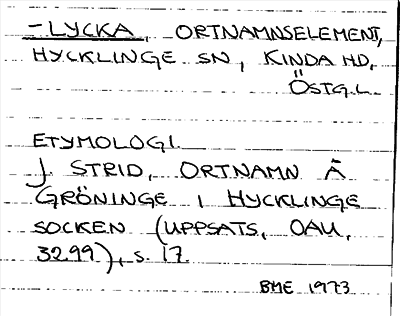 -LYCKA, ORTNAMNSELEMENT,
HYCKLINGE SN, KINDA HD,
ÖSTG.L.
ETYMOLOGI.
J. STRID, ORTNAMN Å
GRÖNINGE I HYCKLINGE
SOCKEN (UPPSATS, OAU,
3299), s. 17
BME 1973